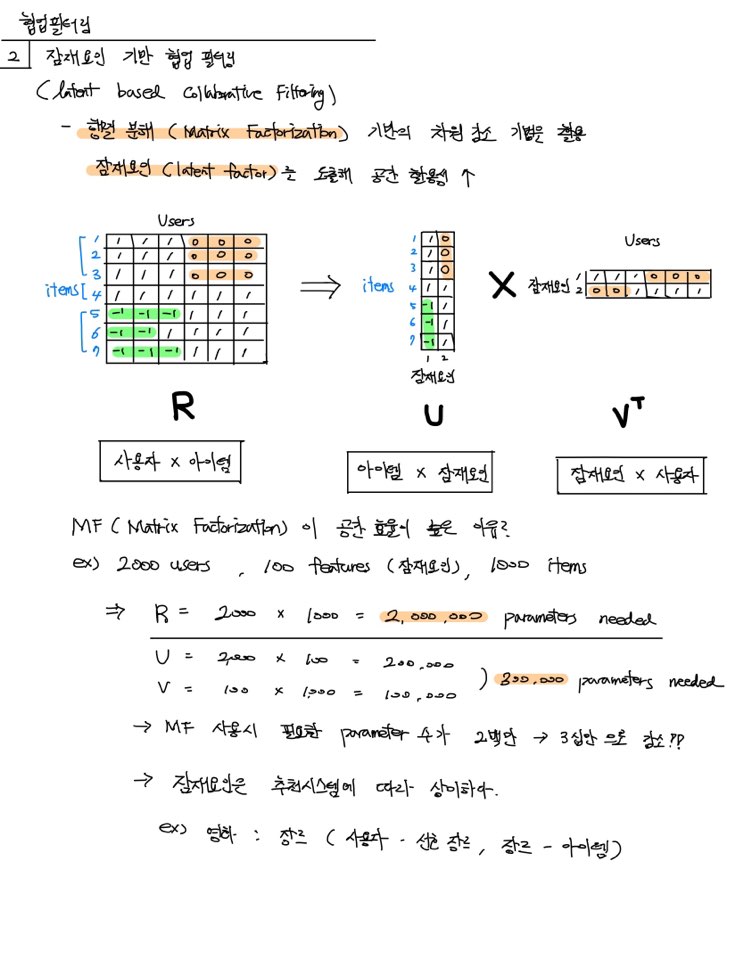 협업필터링
2 잠재요인 기반 협업 필터링
(latent based Collaborative Filtering)
- 행렬 분해 (Matrix Factorization) 기반의 차원 감소 기법을 활용
잠재요인 (latent factor)는 도출해 공간 활용성 ↑
Users
1 1 1 1 0 0 0
2 1 1 1 0 0 0
3 1 1 1 0 0 0
items 4 1 1 1 1 1 1
5 -1 -1 -1 1 1 1
6 -1 -1 1 1 1 1
7 -1 -1 -1 1 1 1
R
사용자 × 아이템
⇒
items
1 1 0
2 1 0
3 1 0
4 1 1
5 -1 1
6 -1 1
7 -1 1
1 2
잠재요인
U
아이템 × 잠재요인
×
Users
잠재요인
1 1 1 1 0 0 0
2 0 0 1 1 1 1
Vᵀ
잠재요인 × 사용자
MF (Matrix Factorization) 이 공간 효율이 높은 이유?
ex) 2000 users, 100 features (잠재요인), 1000 items
⇒ R = 2000 × 1000 = 2,000,000 parameters needed
U = 2,000 × 100 = 200,000
V = 100 × 1,000 = 100,000
) 300,000 parameters needed
→ MF 사용시 필요한 parameter 수가 2백만 → 3십만으로 감소!?
→ 잠재요인은 추천시스템에 따라 상이하다.
ex) 영화 : 장르 (사용자 - 선호 장르, 장르 - 아이템)